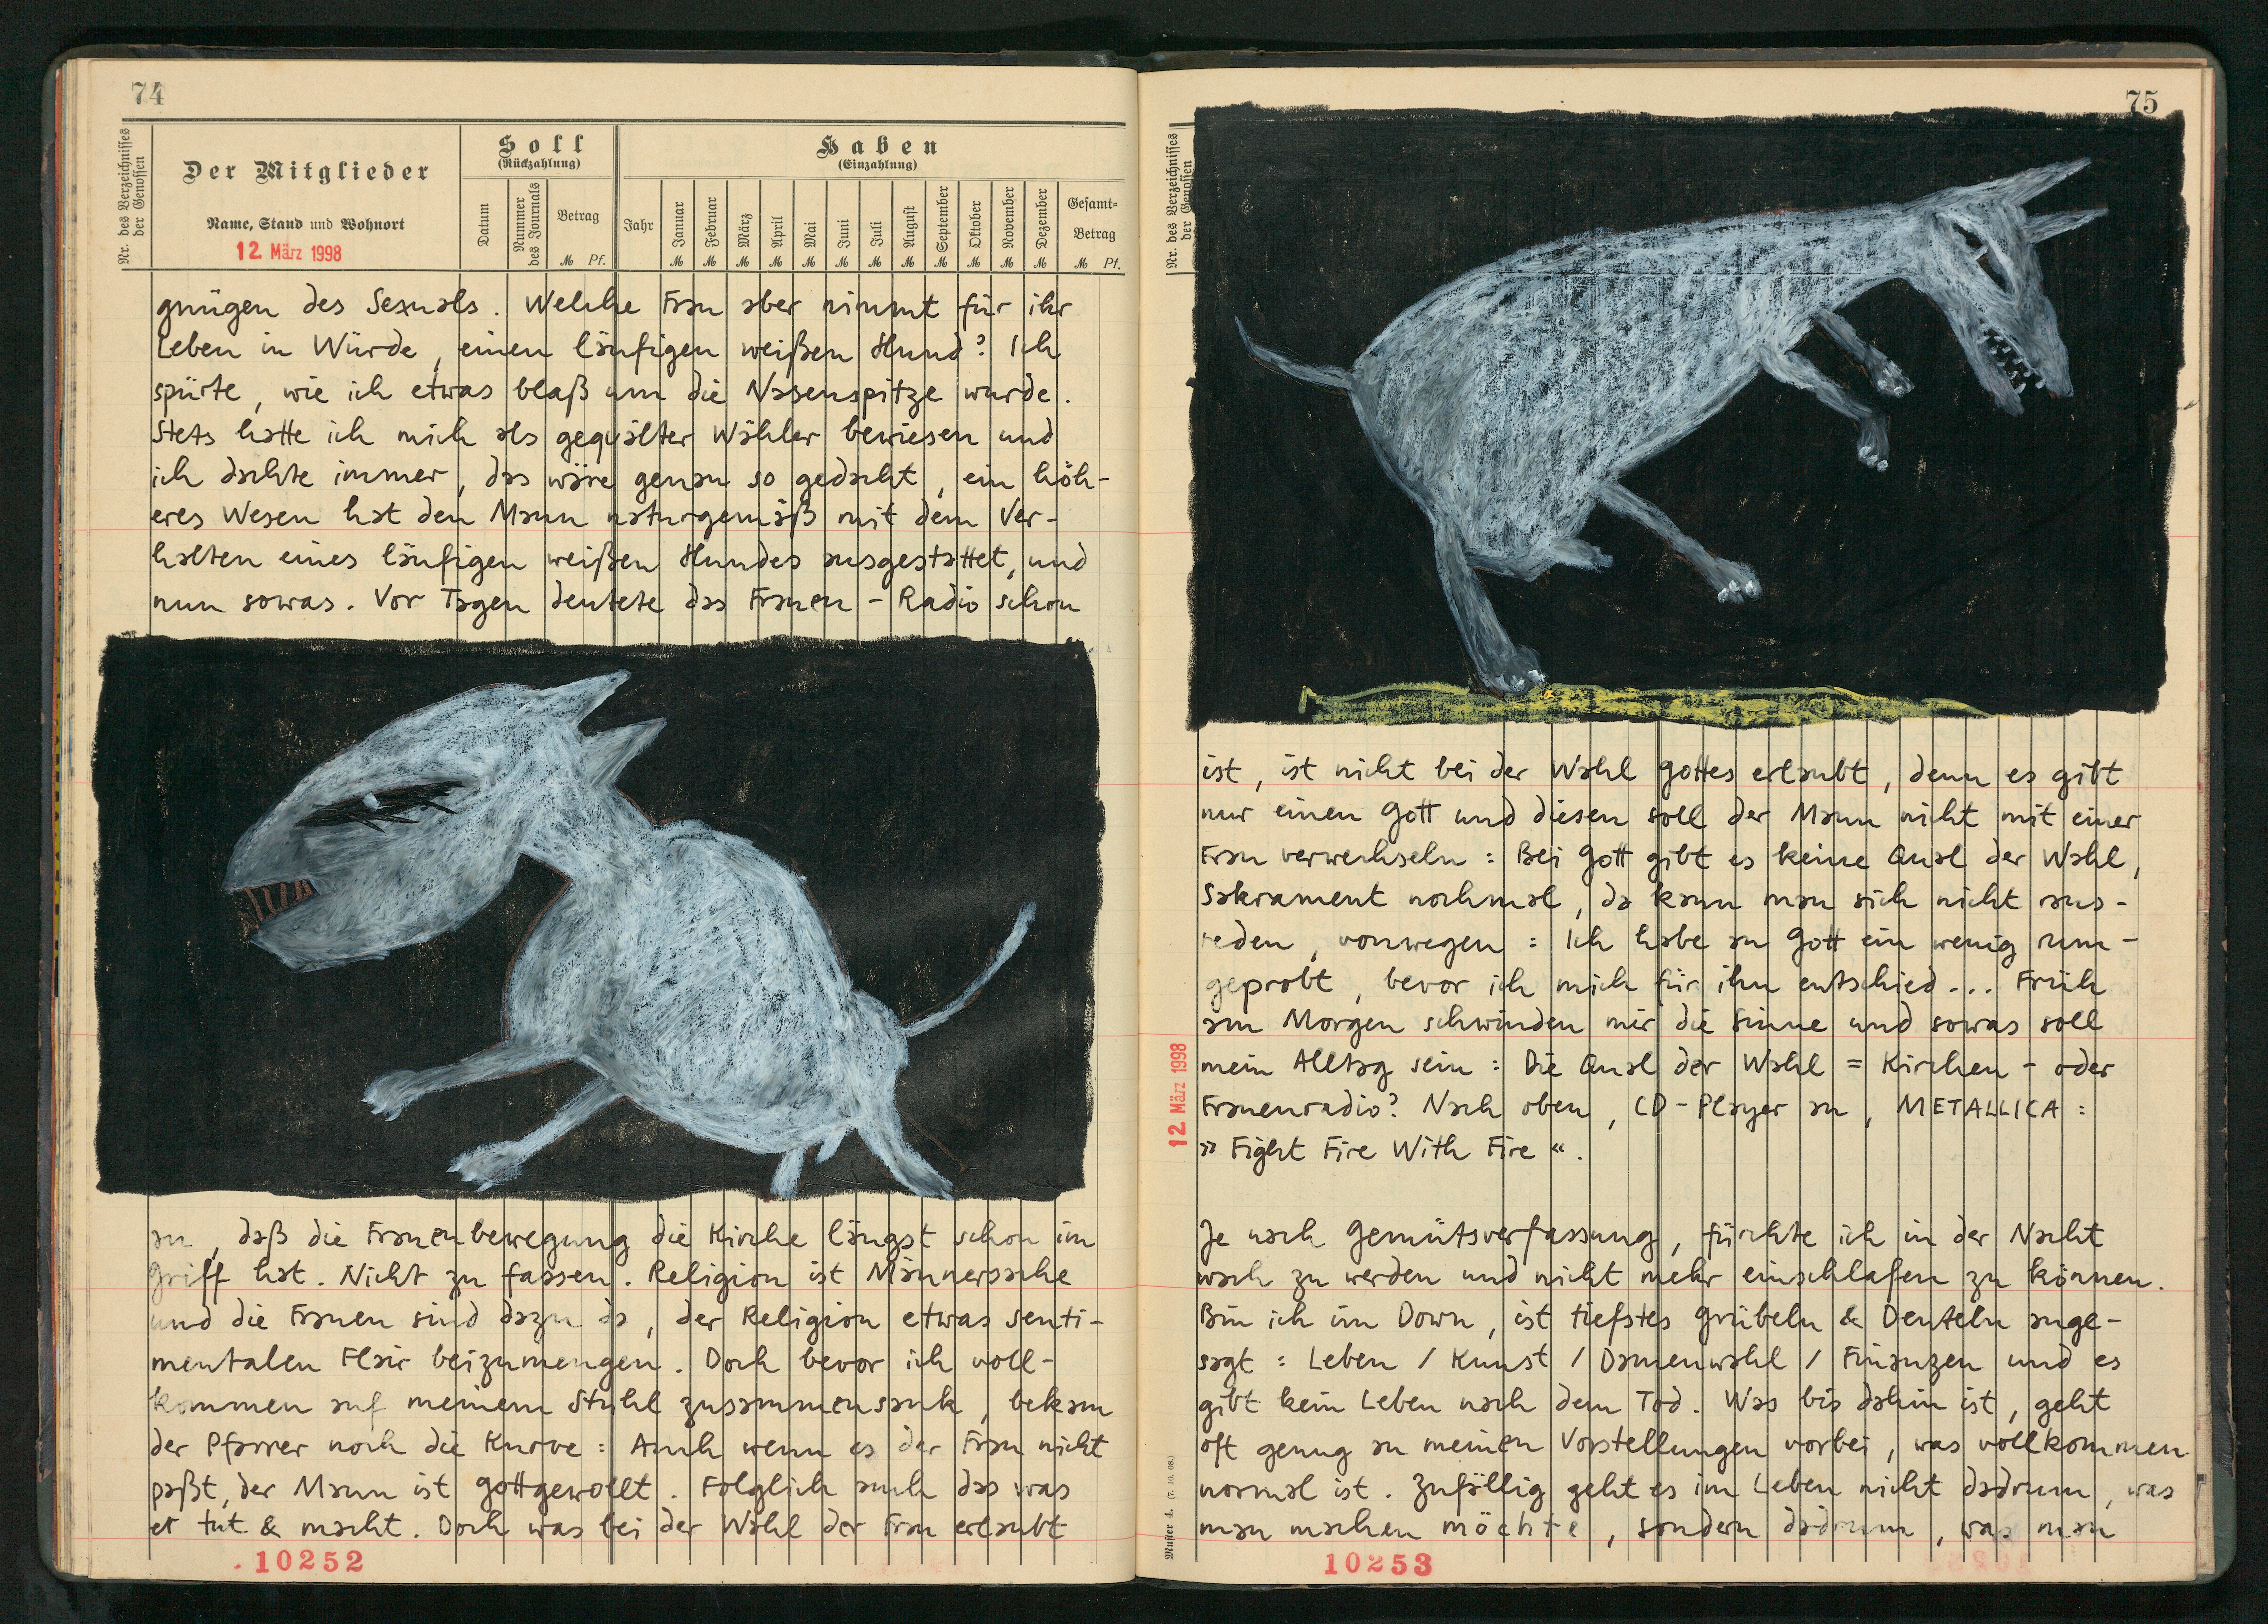 74
Nr. des Verzeichnisses der Genossen
Der Mitglieder
Name, Stand und Wohnort
12. März 1998
Soll
(Rückzahlung)
Datum
Nummer des Journals
Betrag
M Pf.
Haben
(Einzahlung)
Jahr
Januar M
Februar M
März M
April M
Mai M
Juni M
Juli M
August M
September M
Oktober M
November M
Dezember M
Gesamt-
Betrag
M Pf.
gnügen des Sexuals. Welche Frau aber nimmt für ihr
Leben in Würde, einen läufigen weißen Hund? Ich
spürte, wie ich etwas blaß um die Nasenspitze wurde.
Stets hatte ich mich als gequälter Wähler bewiesen und
ich dachte immer, das wäre genau so gedacht, ein höh-
eres Wesen hat den Mann naturgemäß mit dem Ver-
halten eines läufigen weißen Hundes ausgestattet, und
nun sowas. Vor Tagen deutete das Frauen-Radio schon
an, daß die Frauenbewegung die Kirche längst schon im
Griff hat. Nicht zu fassen. Religion ist Männersache
und die Frauen sind dazu da, der Religion etwas senti-
mentalen Flair beizumengen. Doch bevor ich voll-
kommen auf meinem Stuhl zusammensank, bekam
der Pfarrer noch die Kurve: Auch wenn es der Frau nicht
paßt, der Mann ist gottgewollt. Folglich auch das was
er tut & macht. Doch was bei der Wahl der Frau erlaubt
10252
75
Nr. des Verzeichnisses der Genossen
ist, ist nicht bei der Wahl Gottes erlaubt, denn es gibt
nur einen Gott und diesen soll der Mann nicht mit einer
Frau verwechseln: Bei Gott gibt es keine Qual der Wahl,
Sakrament nochmal, da kann man sich nicht raus-
reden, vonwegen: Ich habe an Gott ein wenig rum-
geprobt, bevor ich mich für ihn entschied... Früh
am Morgen schwinden mir die Sinne und sowas soll
mein Alltag sein: Die Qual der Wahl = Kirchen- oder
Frauenradio? Nach oben, CD-Player an, METALLICA:
» Fight Fire With Fire «.
12. März 1998
Je nach Gemütsverfassung, fürchte ich in der Nacht
wach zu werden und nicht mehr einschlafen zu können.
Bin ich im Down, ist tiefstes Grübeln & Deuteln ange-
sagt: Leben / Kunst / Damenwahl / Finanzen und es
gibt kein Leben nach dem Tod. Was bis dahin ist, geht
oft genug an meinen Vorstellungen vorbei, was vollkommen
normal ist. Zufällig geht es im Leben nicht dadrum, was
man machen möchte, sondern dadrum, was man
Muster 4. (7. 10. 08.)
10253